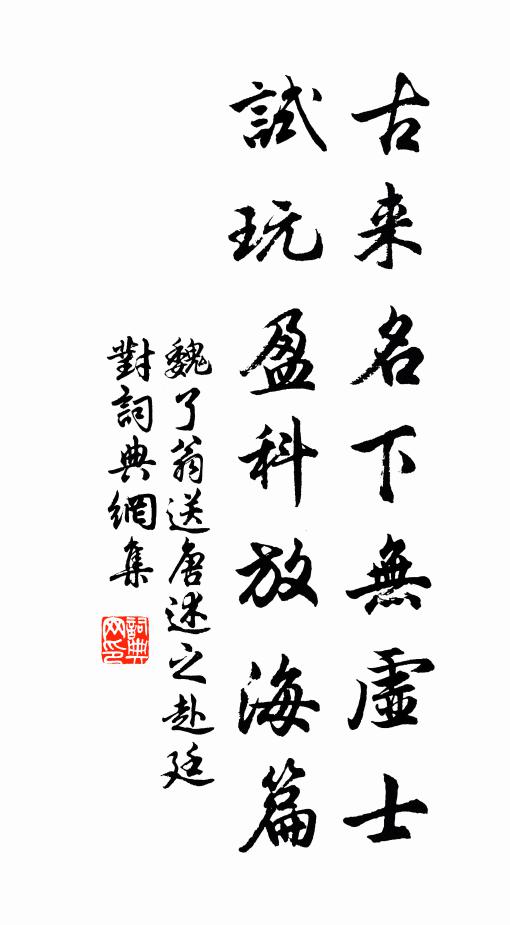 古来名下無虛士
試玩盈科放海篇
魏了翁送唐述之赴廷
對詞典網集
詞典
网印